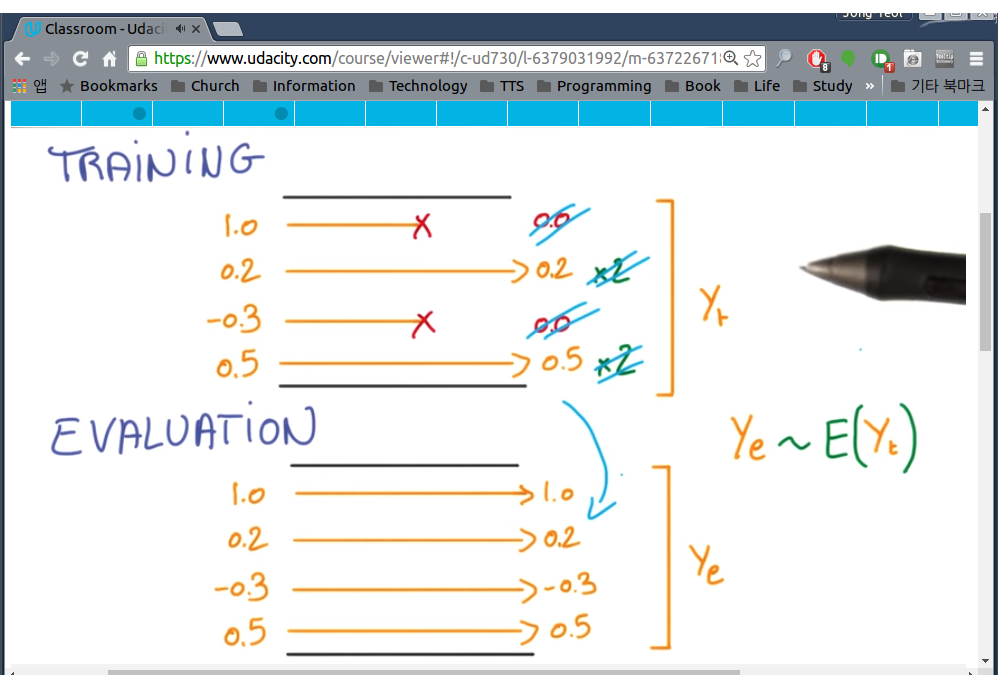 Jong Yeol
Classroom - Udaci
https://www.udacity.com/course/viewer#!/c-ud730/l-6379031992/m-63722671
8
1
앱 Bookmarks Church Information Technology TTS Programming Book Life Study » 기타 북마크
TRAINING
1.0 X 0.0
0.2 0.2 x2
-0.3 X 0.0
0.5 0.5 x2
Yt
EVALUATION
Ye ~ E(Yt)
1.0 1.0
0.2 0.2
-0.3 -0.3
0.5 0.5
Ye